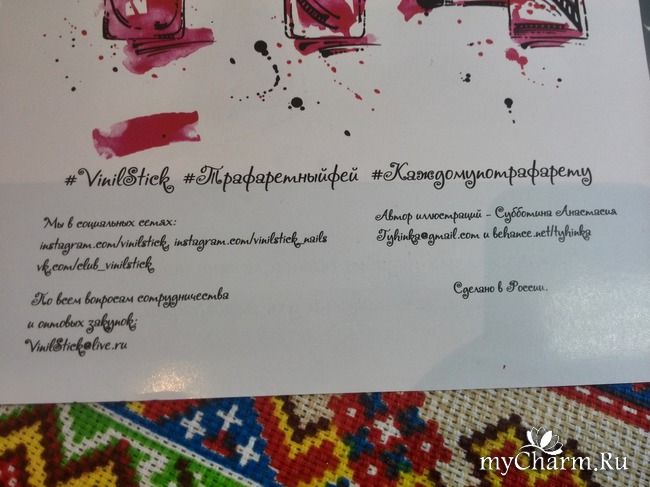 #VinilStick #Трафаретныйфей #Каждомупотрафарету
Мы в социальных сетях:
instagram.com/vinilstick, instagram.com/vinilstick_nails
vk.com/club_vinilstick
По всем вопросам сотрудничества
и оптовых закупок:
VinilStick@live.ru
Автор иллюстраций - Субботина Анастасия
Tyhinka@gmail.com и behance.net/tyhinka
Сделано в России.
myCharm.Ru